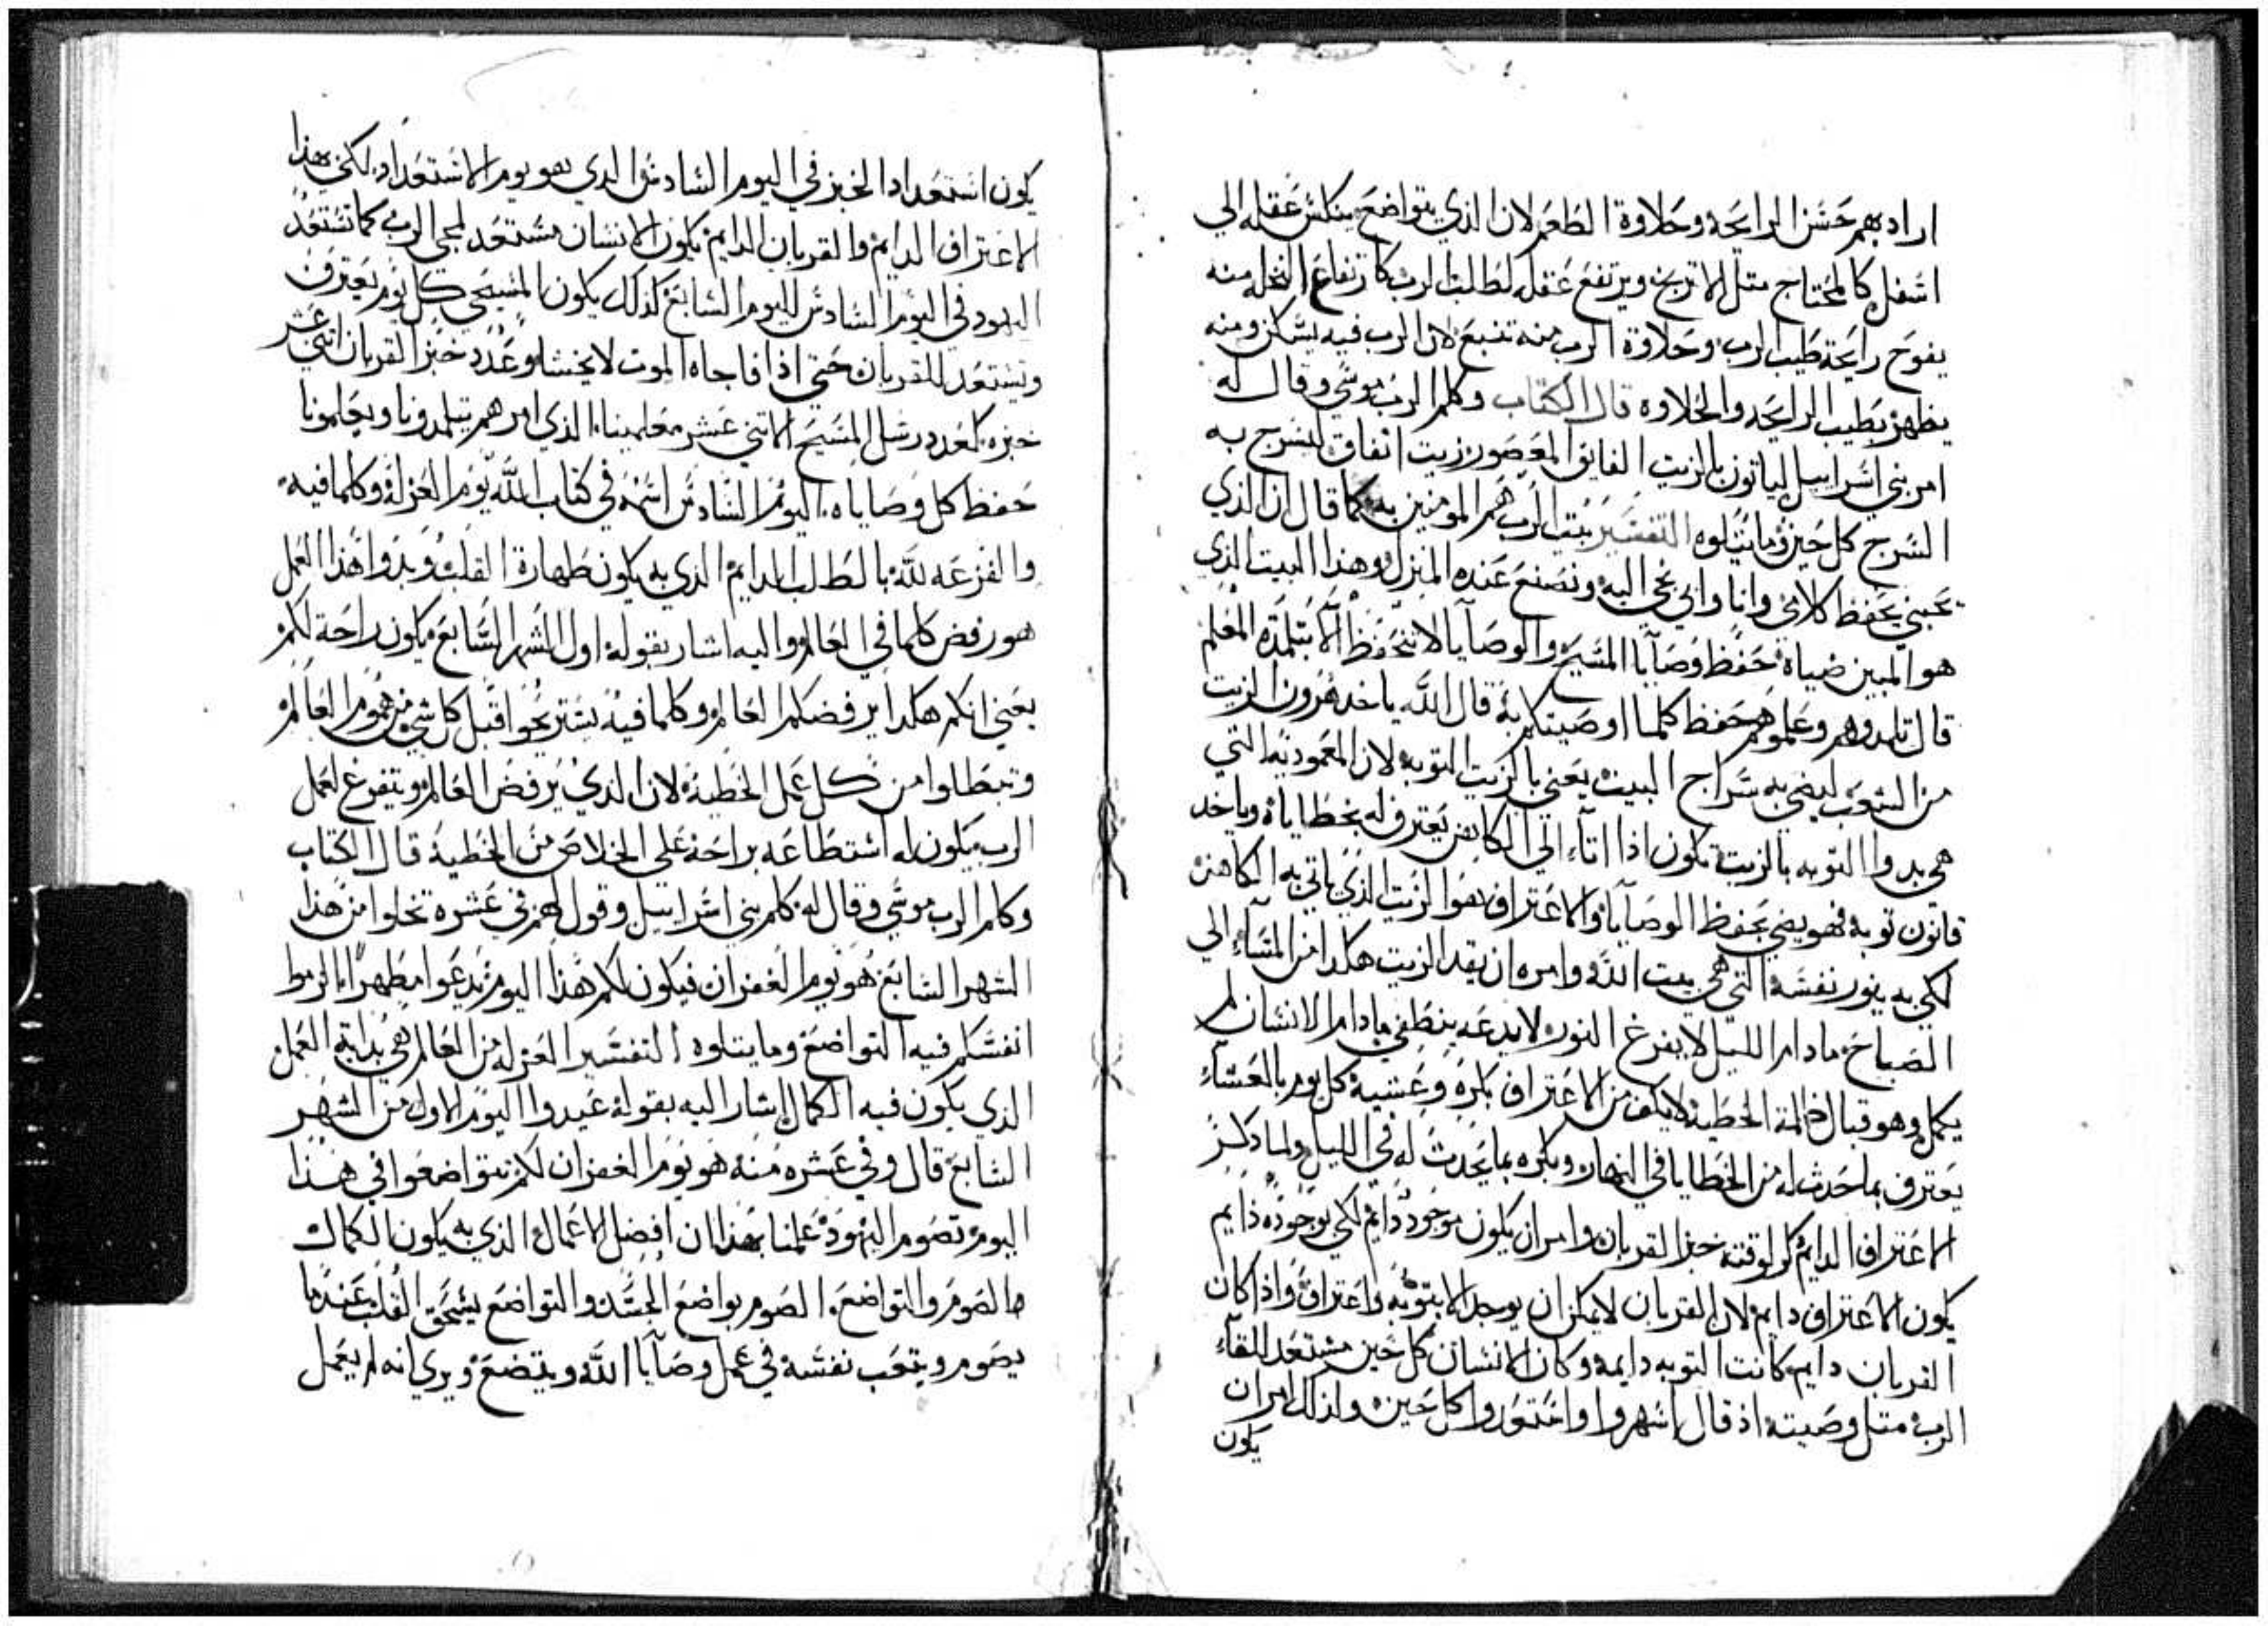 اراد بهم حسن الرايحه وحلاوة الطعم لان الذي يتواضع ينكس عقله الي
اسفل كالمحتاج مثل الاترنج ويرتفع عقله لطلب الرب كارتفاع النخله منه
يفوح رايحة طيب الرب وحلاوة الرب منه تنبع لان الرب فيه يسكن ومنه
يظهر بطيب الرايحه والحلاوه قال الكتاب وكلم الرب موسي وقال له
امر بني اسراييل لياتون بالزيت الفايق المعصور زيت انفاق لتسرج به
السرج كل حين وما يتلوه التفسير بيت الرب هم المومنين به كما قال ان الذي
يحبني يحفظ كلامي وانا وابي نجي اليه ونصنع عنده المنزل وهذا البيت الذي
هو المبين ضياه حفظ وصايا المسيح والوصايا لا تنحفظ الا بتلمذة المعلم
قال تلمدوهم وعلموهم حفظ كلما اوصيتكم به قال الله ياخد هرون الزيت
من الشعب ليضي به سراج البيت يعني بالزيت التوبه لان المعموديه التي
هي بدوا التوبه بالزيت تكون اذا اتا الي الكاهن يعترف له بخطاياه وياخد
قانون توبه فهو يضي بحفظ الوصايا والاعتراف هو الزيت الذي ياتي به الكاهن
لكي به ينور نفسه التي هي بيت الله وامره ان يقد الزيت هكدا من المساء الي
الصباح مادام الليل لا يفرغ النور لا يدعه ينطفي مادام الانسان لم
يكمل وهو قبال ظلمة الخطيه لا يكف من الاعتراف بكره وعشيه كل يوم بالعشاء
يعترف بما حدث له من الخطايا في النهار وبكره بما يحدث له في الليل ولما دكر
الاعتراف الدايم كر لوقته خبز القربان وامر ان يكون موجود دايم لكي بوجوده دايم
يكون الاعتراف دايم لان القربان لا يمكن ان يوجد الا بتوبه واعتراف واذا كان
القربان دايم كانت التوبه دايمه وكان الانسان كل حين مستعد للقاء
الرب مثل وصيته اذ قال اسهروا واستعدوا كل حين ولذلك امر ان
يكون
يكون استعداد الخبز في اليوم السادس الدي هو يوم الاستعداد لكي بهذا
الاعتراف الدايم والقربان الدايم يكون الانسان مستعد لمجي الرب كما تستعد
اليهود في اليوم السادس لليوم السابع كذلك يكون المسيحي كل يوم يعترف
ويستعد للقربان حتي اذا فاجاه الموت لا يخشا وعدد خبز القربان اثني عشر
خبزه كعدد رسل المسيح الاثني عشر معلمينا الذي امرهم يتلمدونا ويعلمونا
حفظ كل وصاياه اليوم السادس اسمه في كتاب الله يوم العزله وكلما فيه
والفزعه لله بالطلب الدايم الذي به يكون طهارة القلب وبدوا هذا العمل
هو رفض كلما في العالم واليه اشار بقوله اول الشهر السابع يكون راحة لكم
يعني انكم هكدا برفضكم العالم وكلما فيه تستريحوا قبل كل شي من هموم العالم
وتبطلوا من كل عمل الخطيه لان الذي يرفض العالم ويتفرغ لعمل
الرب يكون له استطاعه براحة علي الخلاص من الخطيه قال الكتاب
وكلم الرب موسي وقال له كلم بني اسراييل وقول لهم في عشره تخلوا من هذا
الشهر السابع هو يوم الغفران فيكون لكم هذا اليوم تدعوا مطهرا الزموا
انفسكم فيه التواضع وما يتلوه التفسير العزله من العالم هي بداية العمل
الذي يكون فيه الكمال اشار اليه بقوله عيدوا اليوم الاول من الشهر
السابع قال وفي عشره منه هو يوم الغفران لكم تتواضعوا في هذا
اليوم تصوم اليهود علمنا بهذا ان افضل الاعمال الذي به يكون الكمال
هم الصوم والتواضع الصوم يواضع الجسد والتواضع يسحق القلب عندما
يصوم ويتعب نفسه في عمل وصايا الله ويتضع ويري انه لم يعمل